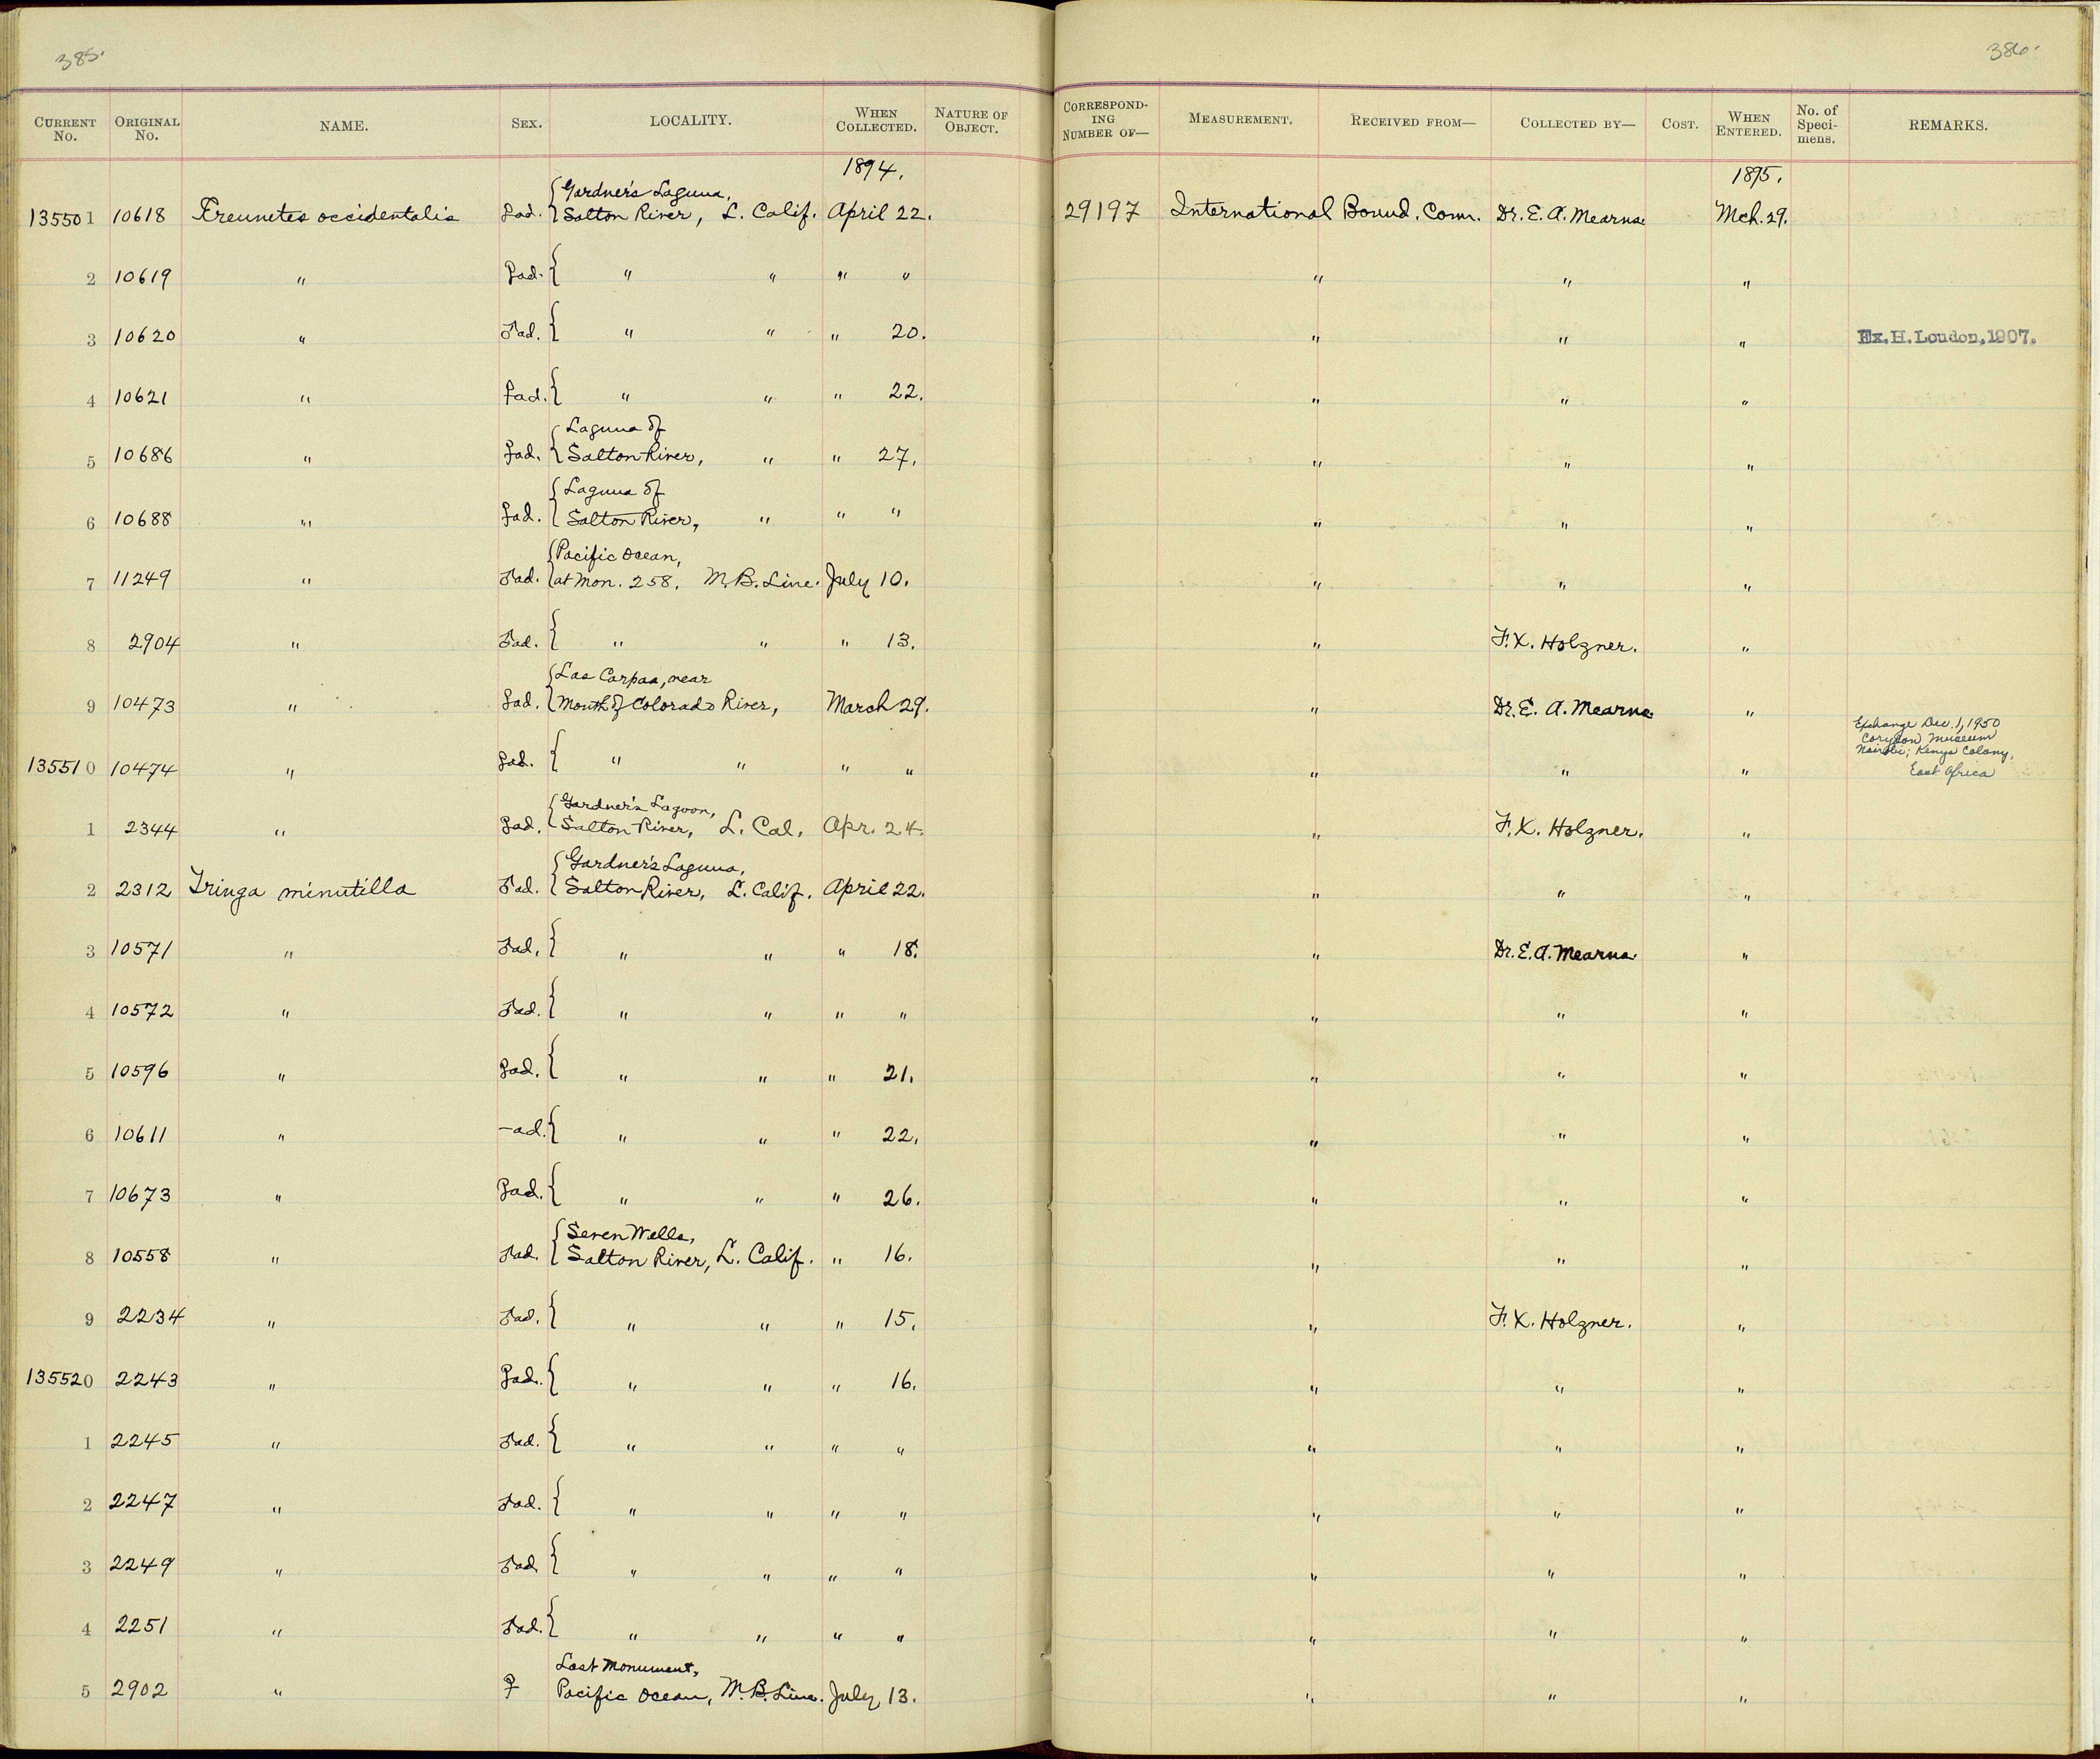 385.
386.
CURRENT No. ORIGINAL No. NAME. SEX. LOCALITY. WHEN COLLECTED. NATURE OF OBJECT. CORRESPONDING NUMBER OF— MEASUREMENT. RECEIVED FROM— COLLECTED BY— COST. WHEN ENTERED. No. of Specimens. REMARKS.
1894. 1895.
Gardner's Laguna,
135501 10618 Ereunetes occidentalis ad. Salton River, L. Calif. April 22. 29197 International Bound. Com. Dr. E. A. Mearns. Mch. 29.
2 10619 " ad. " " " " " " "
3 10620 " ad. " " " 20. " " " Ex. H. Loudon, 1907.
4 10621 " ad. " " " 22. " " "
Laguna of
5 10686 " ad. Salton River, " " 27. " " "
Laguna of
6 10688 " ad. Salton River, " " " " " "
Pacific Ocean,
7 11249 " ad. at Mon. 258. M.B. Line. July 10. " " "
8 2904 " ad. " " " 13. " F. X. Holzner. "
Las Carpas, near
9 10473 " ad. mouth of Colorado River, March 29. " Dr. E. A. Mearns. "
Exchange Dec. 1, 1950
Corydon Museum
Nairobi; Kenya Colony,
East Africa
135510 10474 " ad. " " " " " " "
Gardner's Lagoon,
1 2344 " ad. Salton River, L. Cal. Apr. 24. " F. X. Holzner. "
Gardner's Laguna,
2 2312 Tringa minutilla ad. Salton River, L. Calif. April 22. " " "
3 10571 " ad. " " " 18. " Dr. E. A. Mearns. "
4 10572 " ad. " " " " " " "
5 10596 " ad. " " " 21. " " "
6 10611 " —ad. " " " 22. " " "
7 10673 " ad. " " " 26. " " "
Seven Wells,
8 10558 " ad. Salton River, L. Calif. " 16. " " "
9 2234 " ad. " " " 15. " F. X. Holzner. "
135520 2243 " ad. " " " 16. " " "
1 2245 " ad. " " " " " " "
2 2247 " ad. " " " " " " "
3 2249 " ad. " " " " " " "
4 2251 " ad. " " " " " " "
Last Monument,
5 2902 " ♀ Pacific Ocean, M. B. Line. July 13. " " "